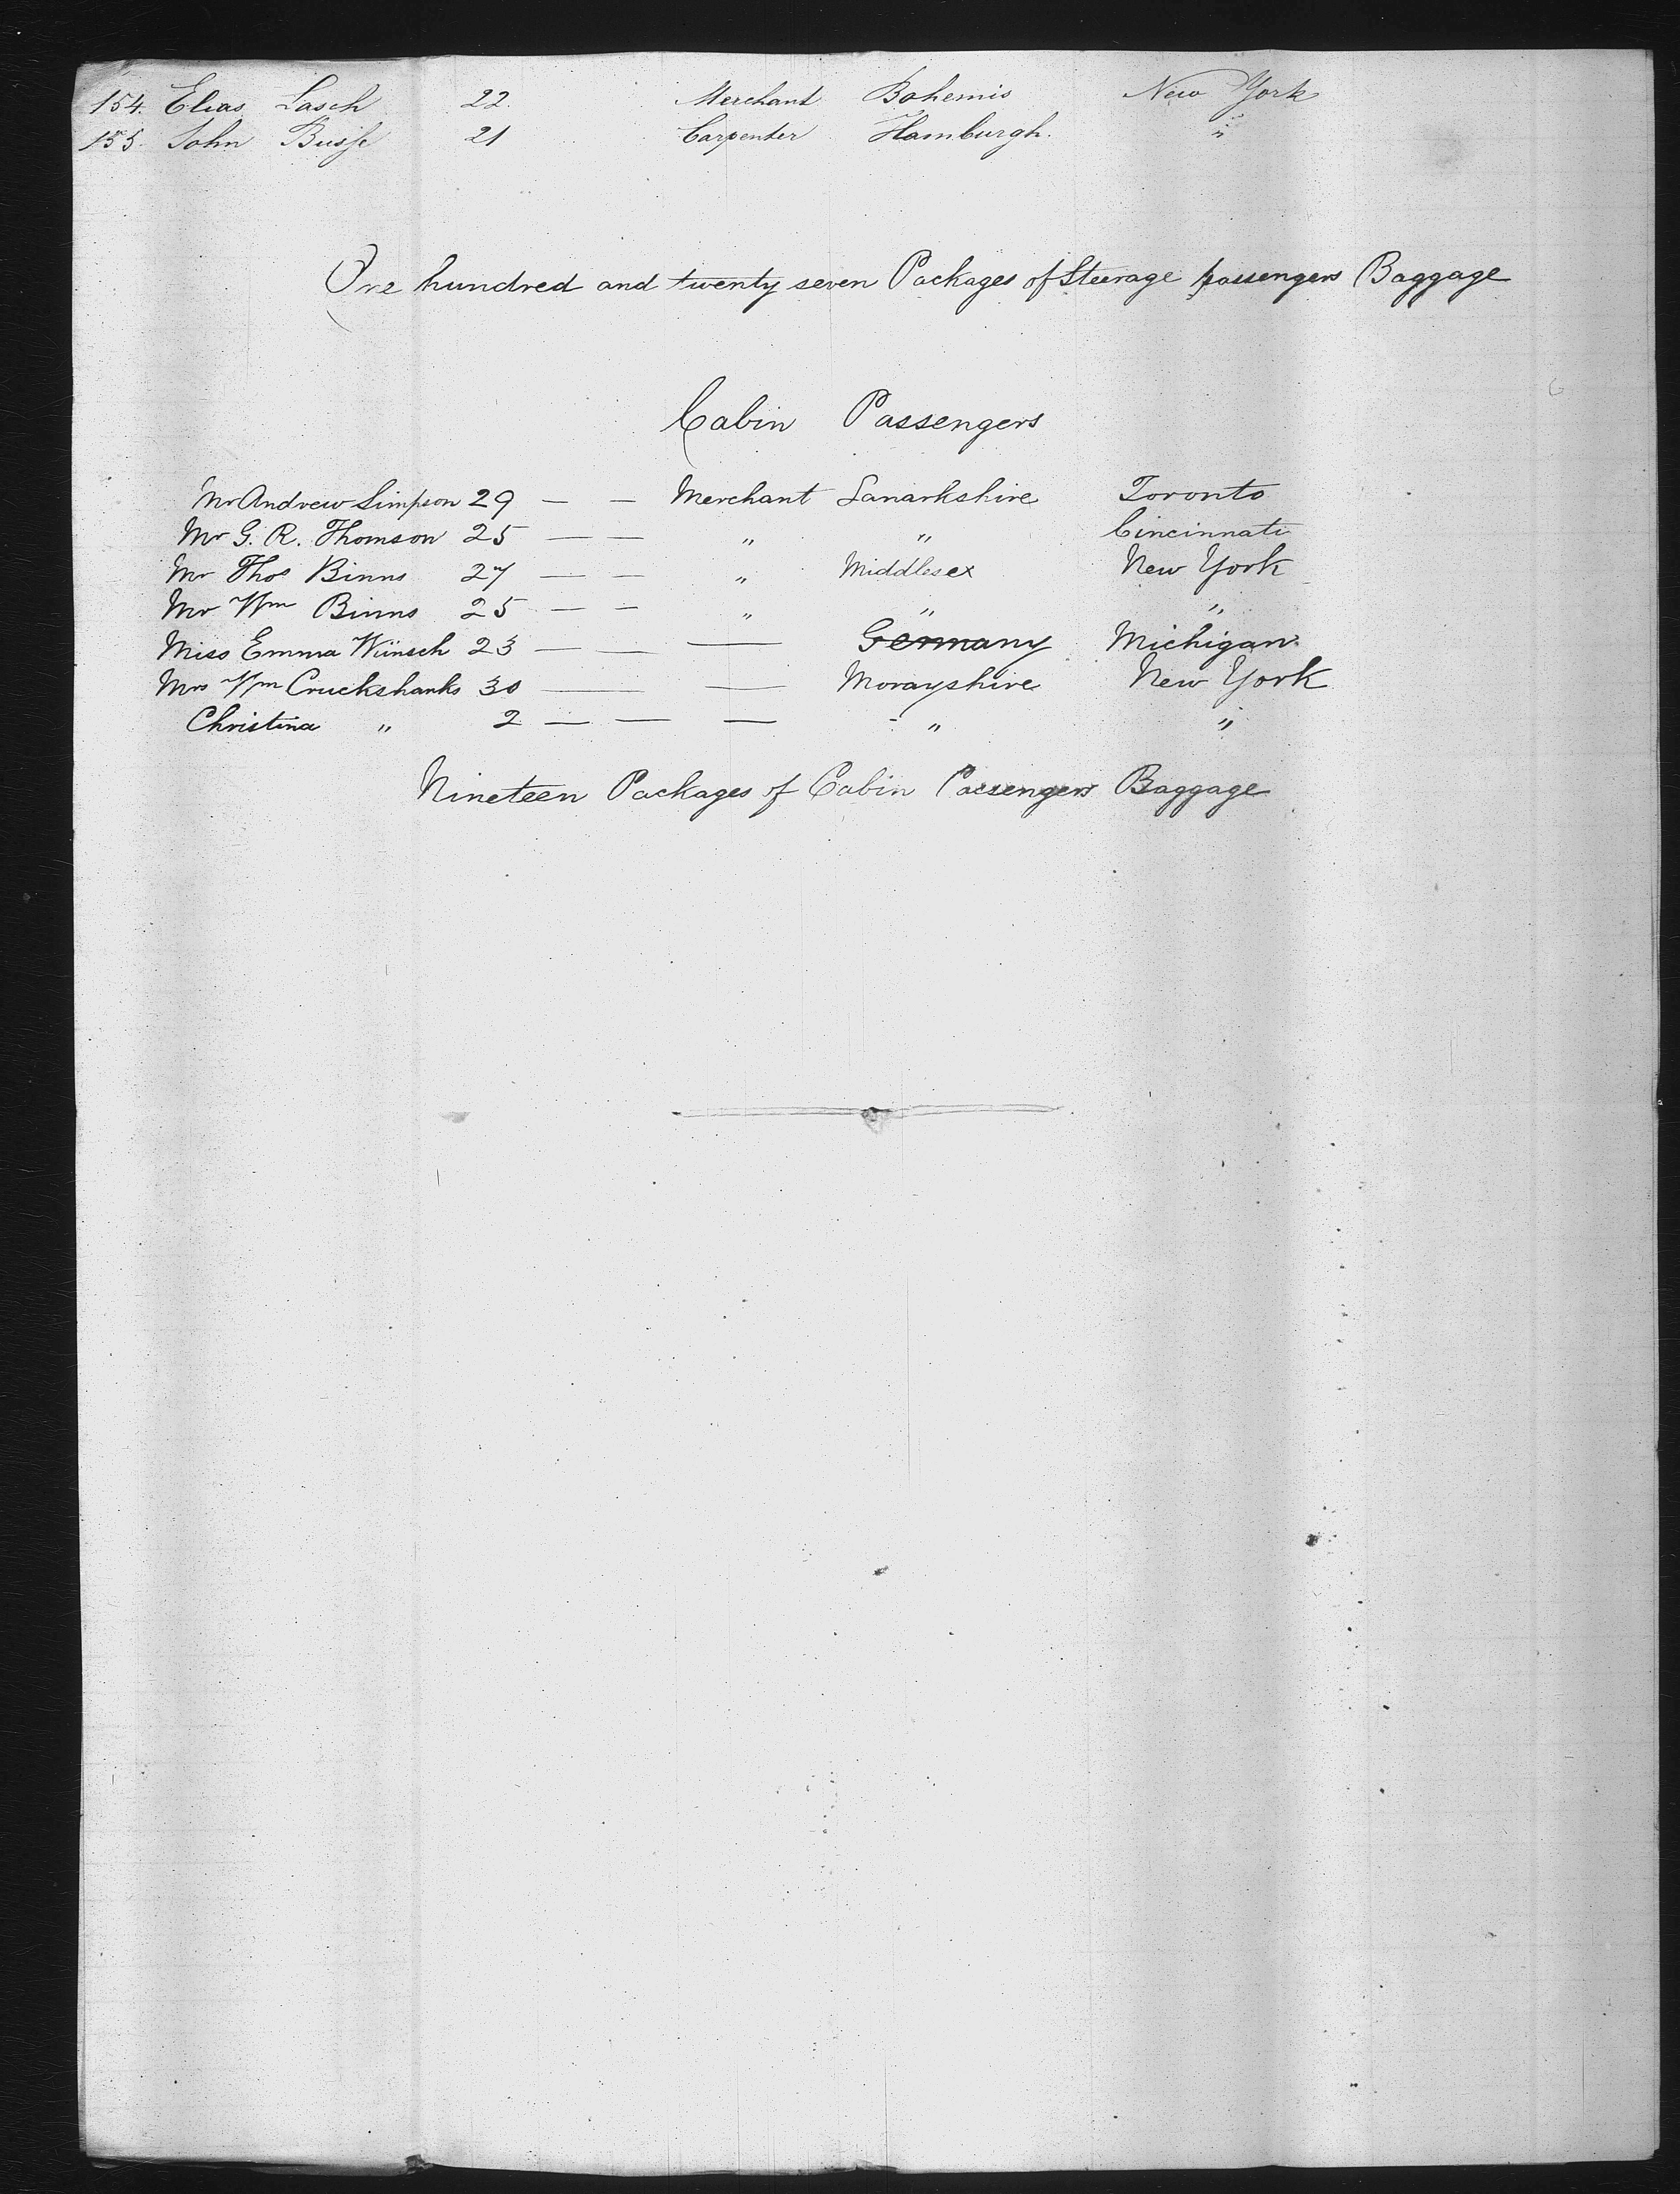 154. Elias Lasch 22. Merchant Bohemis New York
155. John Busse 21 Carpenter Hamburgh. "
One hundred and twenty seven Packages of Steerage passengers Baggage
Cabin Passengers
Mr Andrew Simpson 29 — — Merchant Lanarkshire Toronto
Mr G. R. Thomson 25 — — " " Cincinnati
Mr Thos Binns 27 — — " Middlesex New York
Mr Wm Binns 25 — — " " "
Miss Emma Wünsch 23 — — — Germany Michigan
Mrs Wm Cruckshanks 30 — — — Morayshire New York
Christina " 2 — — — " "
Nineteen Packages of Cabin Passengers Baggage